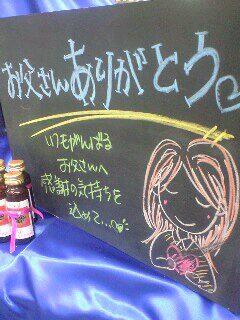 お父さんありがとう♡
いつもがんばる
お父さんへ
感謝の気持ちを
込めて…